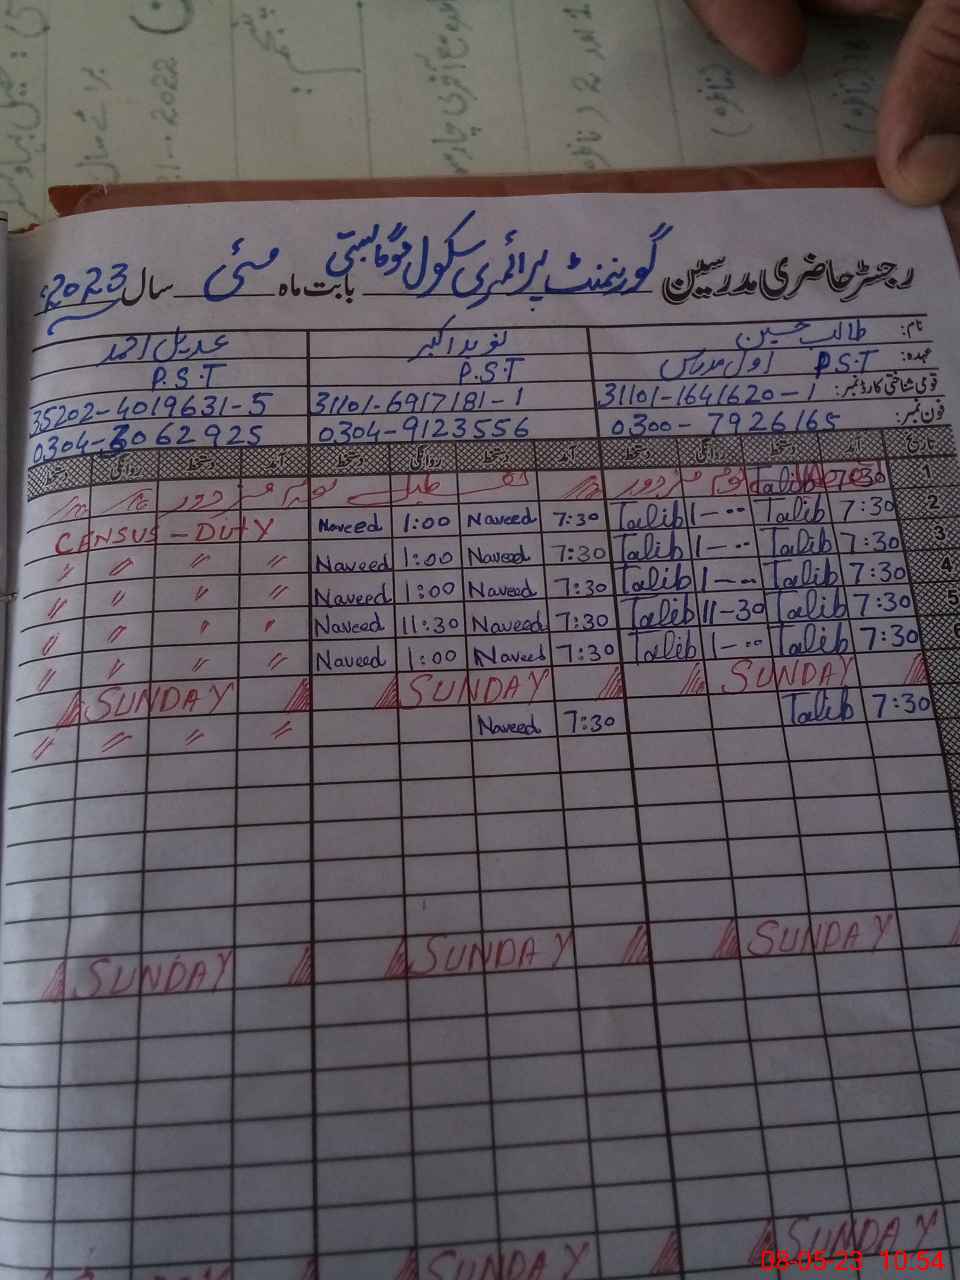 رجسٹر حاضری مدرسین گورنمنٹ پرائمری سکول بابت ماہ مئی سال 2023ء
نام: طالب حسین نوید اکبر عدیل احمد
عہدہ: P.S.T اول مدرس P.S.T P.S.T
قومی شناختی کارڈ نمبر: 31101-1641620-1 31101-6917181-1 35202-4019631-5
فون نمبر: 0300-7926165 0304-9123556 0304-6062925
تاریخ آمد دستخط روانگی دستخط آمد دستخط روانگی دستخط آمد دستخط روانگی دستخط
1 7:30 Talib یوم مزدور تعطیل
2 7:30 Talib 1-00 Talib 7:30 Naveed 1:00 Naveed CENSUS-DUTY
3 7:30 Talib 1-00 Talib 7:30 Naveed 1:00 Naveed 〃 〃 〃 〃
4 7:30 Talib 1-00 Talib 7:30 Naveed 1:00 Naveed 〃 〃 〃 〃
5 7:30 Talib 11-30 Talib 7:30 Naveed 11:30 Naveed 〃 〃 〃 〃
6 7:30 Talib 1-00 Talib 7:30 Naveed 1:00 Naveed 〃 〃 〃 〃
SUNDAY SUNDAY SUNDAY
7:30 Talib 7:30 Naveed 〃 〃 〃 〃
SUNDAY SUNDAY SUNDAY
SUNDAY SUNDAY SUNDAY
08-05-23 10:54